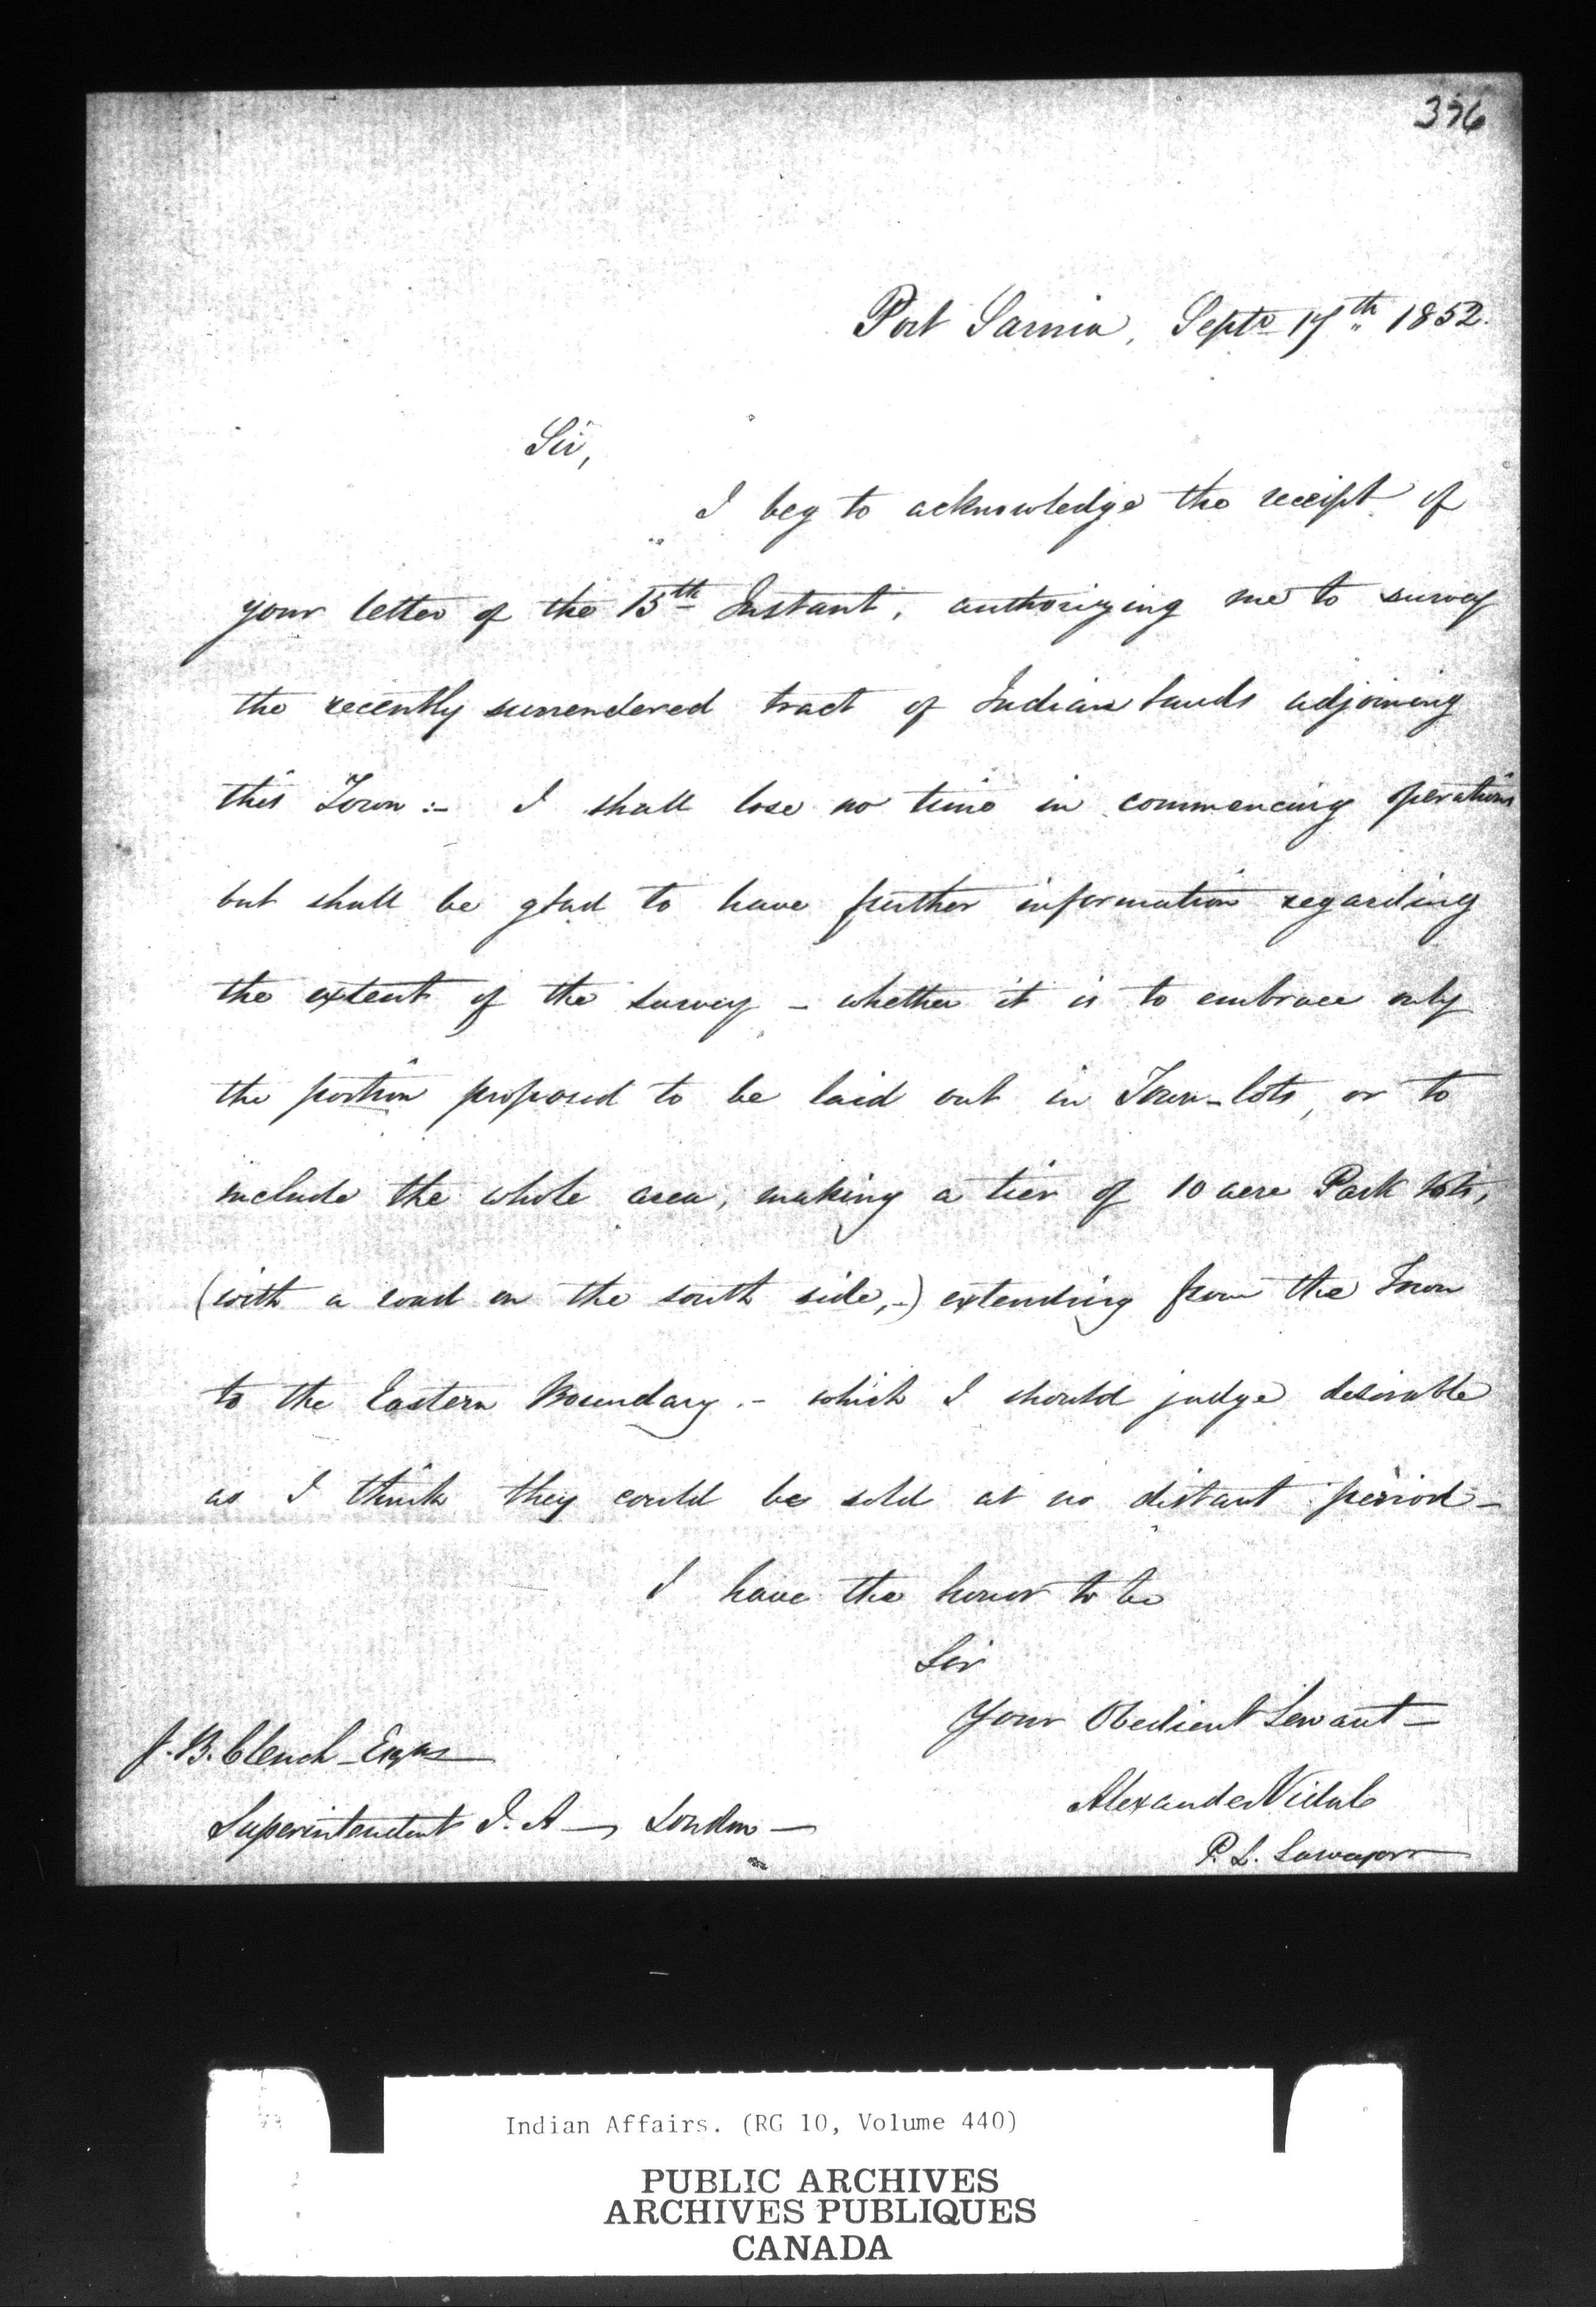 376
Port Sarnia, Septr 17th 1852.
Sir,
I beg to acknowledge the receipt of
your letter of the 15th Instant, authorizing me to survey
the recently surrendered tract of Indian Lands adjoining
this Town :- I shall lose no time in commencing operations
but shall be glad to have further information regarding
the extent of the survey - whether it is to embrace only
the portion proposed to be laid out in Town-lots, or to
include the whole area, making a tier of 10 acre Park lots,
(with a road on the south side,-) extending from the Town
to the Eastern Boundary .- which I should judge desirable
as I think they could be sold at no distant period -
I have the honor to be
Sir
Your Obedient Servant -
J. B. Clench Esqre
Alexander Vidal
Superintendent I. A - London -
P. L. Surveyor
Indian Affairs. (RG 10, Volume 440)
PUBLIC ARCHIVES
ARCHIVES PUBLIQUES
CANADA